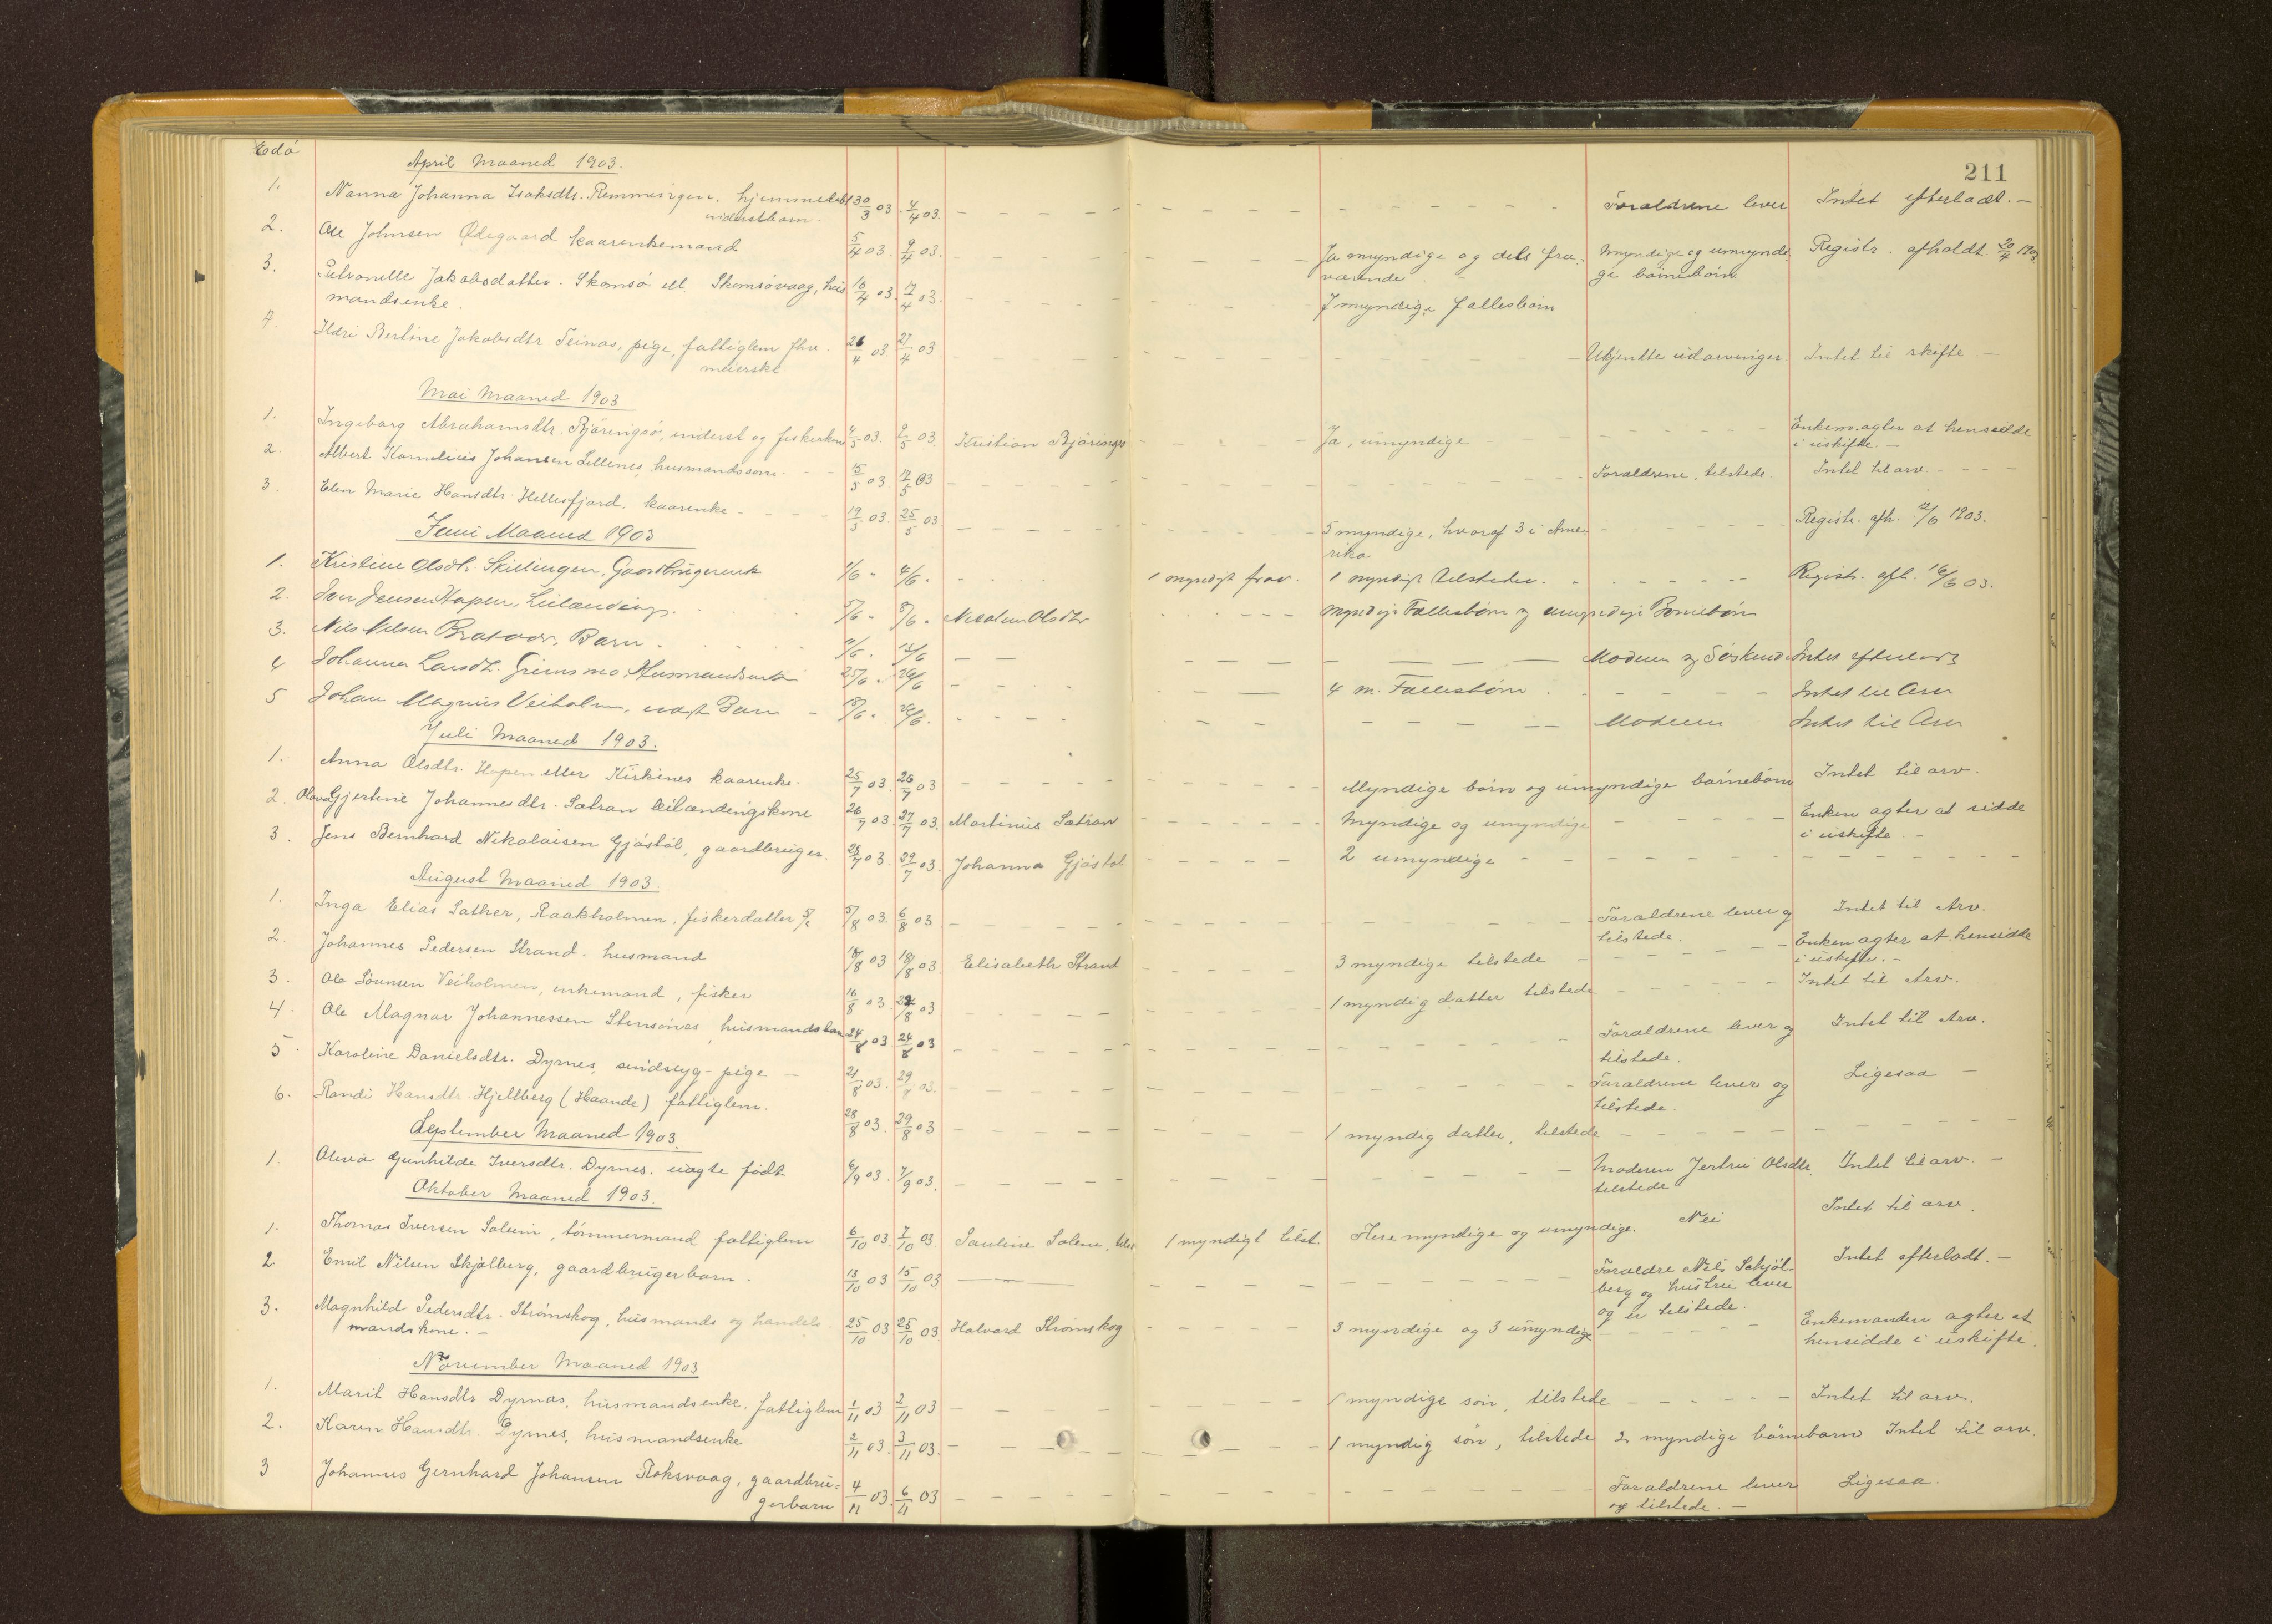 Edö
211
April Maaned 1903.
1. Nanna Johanna Isaksdtr. Remmingen. hjemmedøbt 30/3 03. 4/4 03. Forældrene lever Intet efterladt. –
inderstbarn.
2. Ole Johnsen Ødegaard kaarenkemand 5/4 03. 9/4 03. Ja myndige og dels fra- Myndige og umyndi- Registr. afholdt 20/4 1903
værende ge børnebørn
3. Petronelle Jakobsdatter. Skomsö ell. Skomsövaag, hus 16/4 03. 17/4 03. 7 myndige fællesbörn
mandsenke.
4. Ildri Berline Jakobsdtr Teinæs, pige, fattiglem fhv. 26/4 03. 27/4 03 Ukjendte udarvinger Intet til skifte. –
meierske
Mai Maaned 1903
1. Ingeborg Abrahamsdtr. Björingsö, inderst og fiskerkone 4/5 03. 9/5 03. Kristian Björingsö Ja, umyndige Enkem. agter at hensidde
i uskifte. –
2. Albert Kornelius Johansen Lillenes, husmandssøn. 15/5 03 17/5 03 Forældrene, tilstede. Intet til arv.
3. Elen Marie Hansdtr. Hellesfjord, kaarenke 19/5 03. 25/5 03 5 myndige, hvoraf 3 i Ame- Registr. afh. 1903.
rika
Juni Maaned 1903
1. Kristine Olsdtr. Skillingen, Gaardbrugerenke 1/6 - 4/6 - 1 myndigt frav. 1 myndigt tilstede. Registr. afh. 16/6 03.
2. Iver Jensen Hopen, Leilænding 5/6 - 8/6 - Olsdtr myndige Fællesbörn og umyndige Börnebörn
3. Nils Nilsen Bratvær, Barn Moderen og Söskende Intet efterladt
4 Johanna Larsdtr. Grimsmo, Husmandsenke 25/6 - 26/6 4 m. Fællesbörn Intet til Arv
5 Johan Magnus Veiholm, uægt Barn Moderen Intet til Arv
Juli Maaned 1903.
1. Anna Olsdtr. Hopen eller Kirkenes kaarenke. 25/7 03. 26/7 03 Myndige börn og umyndige barnebörn Intet til arv.
2. Olava Gjertine Johannesdtr. Sætran leilændingskone 26/7 03. 27/7 03. Martinus Sætran Myndige og umyndige Enken agter at sidde
i uskifte. –
3. Jens Bernhard Nikolaisen Gjöstöl, gaardbruger. 28/7 03. 29/7 03. Johanna Gjöstöl 2 umyndige
August Maaned 1903.
1. Inga Elias Sæther, Raakholmen, fiskerdatter 5/8 03. 6/8 03 Forældrene lever og Intet til Arv.
tilstede.
2. Johannes Pedersen Strand. husmand 18/8 03 Elisabeth Strand 3 myndige tilstede Enken agter at hensidde
i uskifte. –
3. Ole Sörensen Veiholmen, enkemand, fisker 16/8 03 03 1 myndig datter tilstede Intet til Arv.
4. Ole Magnar Johannessen Stensönes husmandsbarn 24/8 03. 24/8 03 Forældrene lever og Intet til Arv.
tilstede.
5. Karoline Danielsdtr. Dyrnes, sindssyg-pige – 21/8 03. 29/8 03. Forældrene lever og Ligesaa –
tilstede.
6. Randi Hansdtr. Hjellberg (Haande) fattiglem. 28/8 03. 29/8 03 1 myndig datter, tilstede
September Maaned 1903.
1. Oleva Gunhilde Iversdtr. Dyrnes. uægte født 6/9 03. 7/9 03. Moderen Jertru Olsdtr. Intet til arv. –
tilstede
Oktober Maaned 1903.
1. Thomas Iversen Solem, tömmermand fattiglem 6/10 03. 7/10 03 Pauline Solem, tilst. 1 myndigt tilst. Flere myndige og umyndige. Nei Intet til arv.
2 Emil Nilsen Skjölberg, gaardbrugerbarn. 13/10 03 15/10 03 Forældre Nils Skjöl- Intet efterladt. –
berg og hustru lever
og er tilstede.
3. Magnhild Pedersdtr. Strömskog, husmands og handels- 25/10 03 25/10 03. Halvard Strömskog 3 myndige og 3 umyndige Enkemanden agter at
mandskone. – hensidde i uskifte.
November Maaned 1903
1. Marit Hansdtr Dyrnæs, husmandsenke, fattiglem 1/11 03 2/11 03 1 myndige sön, tilstede Intet til arv.
2. Karen Hansdtr. Dyrnes, husmandsenke 2/11 03. 3/11 03. 1 myndig sön, tilstede 2 myndige börnebarn Intet til arv.
3 Johannes Gernhard Johansen Roksvaag, gaardbru- 4/11 03. 6/11 03 Forældrene lever Ligesaa.
gerbarn og tilstede. –